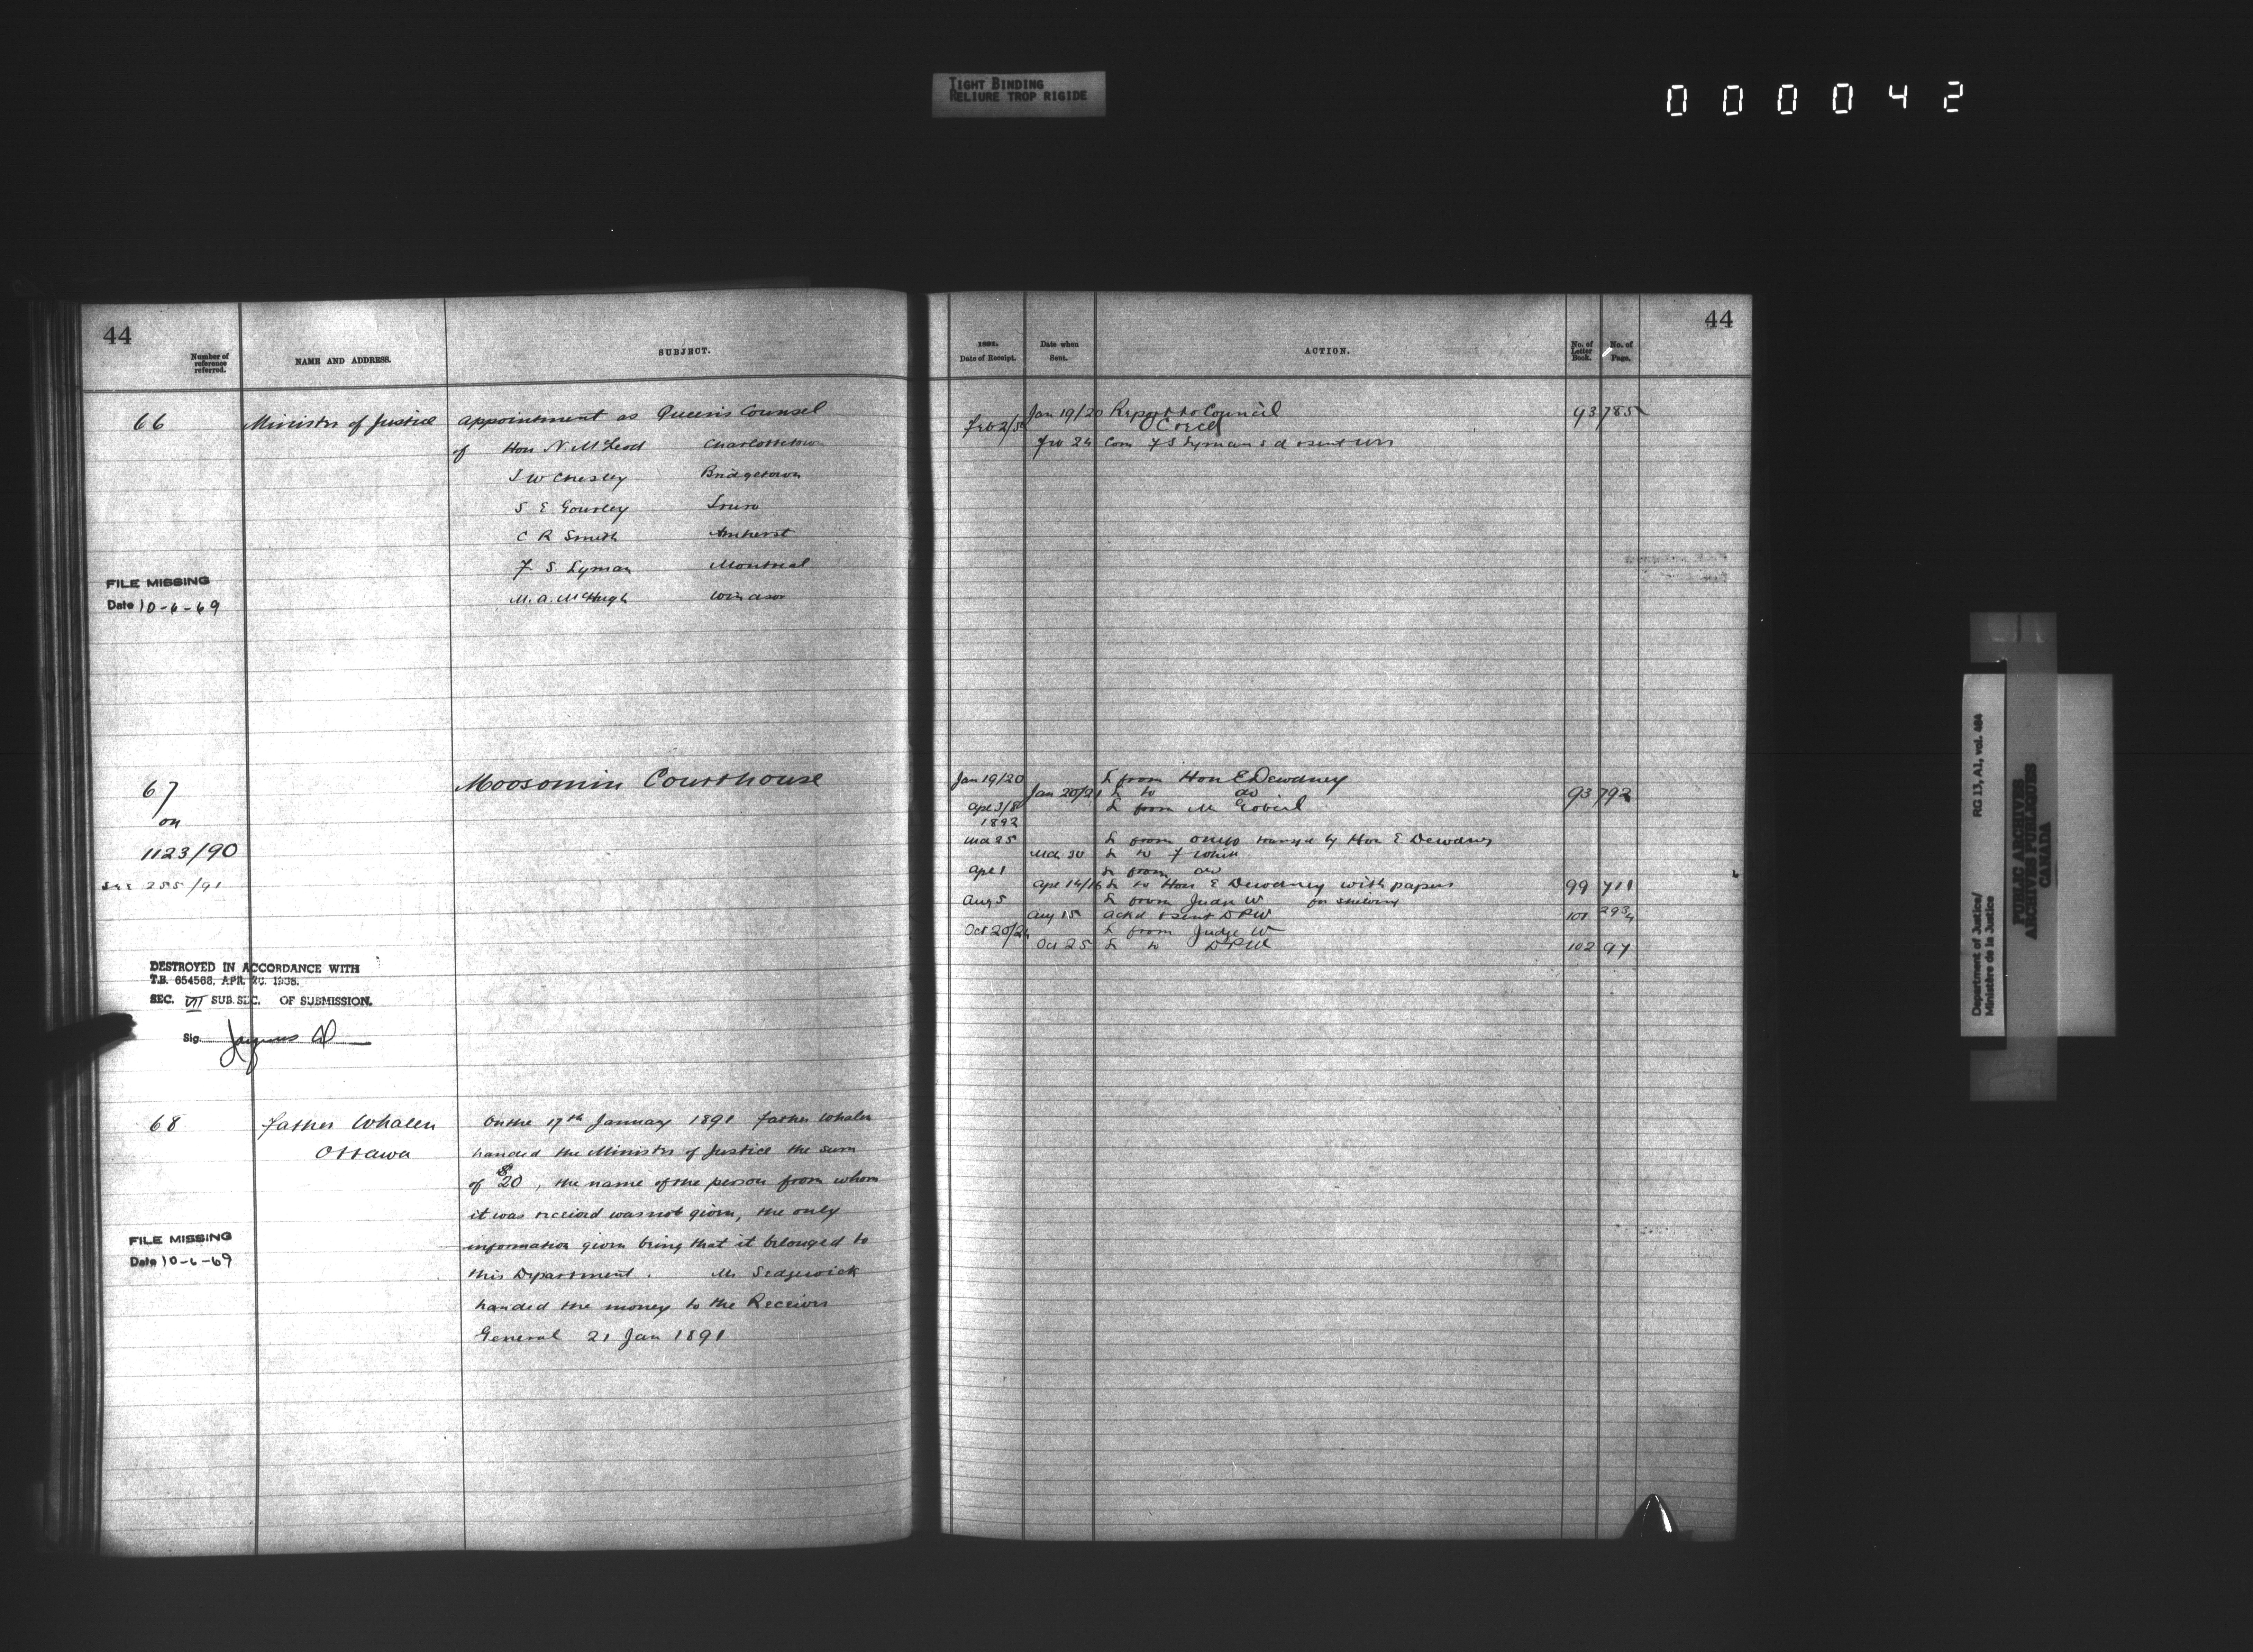 TIGHT BINDING
RELIURE TROP RIGIDE
000042
44
Number of reference referred.
NAME AND ADDRESS.
SUBJECT.
66 Minister of Justice appointment as Queen's Counsel
of Hon N McLeod Charlottetown
J W Chesley Bridgetown
S E Gourley Truro
C R Smith Amherst
F S Lyman Montreal
M. A. McHugh Windsor
FILE MISSING
Date 10-6-69
67 Moosomin Courthouse
on
1123/90
255/91
DESTROYED IN ACCORDANCE WITH
T.B. 654568, APR. 20. 1938.
SEC. VII SUB. SEC. OF SUBMISSION.
Sig.
68 Father Whalen On the 17th January 1891 Father Whalen
Ottawa handed the Minister of Justice the sum
of $20, the name of the person from whom
it was received was not given, the only
information given being that it belonged to
this Department. Mr Sedgewick
handed the money to the Receiver
General 21 Jan 1891
FILE MISSING
Date 10-6-69
44
1891.
Date of Receipt.
Date when Sent.
ACTION.
No. of Letter Book.
No. of Page.
Jan 19/20 Report to Council 93 785
Feb 2/ O C recd
Feb 24 Com F S Lyman
Jan 19/20 L from Hon E Dewdney
Jan 20/21 L to do 93 792
Apl 3/8 L from M Gobeil
1892
Mch 25 L from by Hon E Dewdney
Mch 30 L to F White
Apl 1 L from do
Apl 14/16 L to Hon E Dewdney with papers 99 711
Aug 5 L from Judge W for shelving
Aug 15 ackd & sent D P W 101 293
Oct 20/24 L from Judge W
Oct 25 L to D P W 102 97
Department of Justice/
Ministère de la Justice
RG 13, A1, vol. 484
PUBLIC ARCHIVES
ARCHIVES PUBLIQUES
CANADA